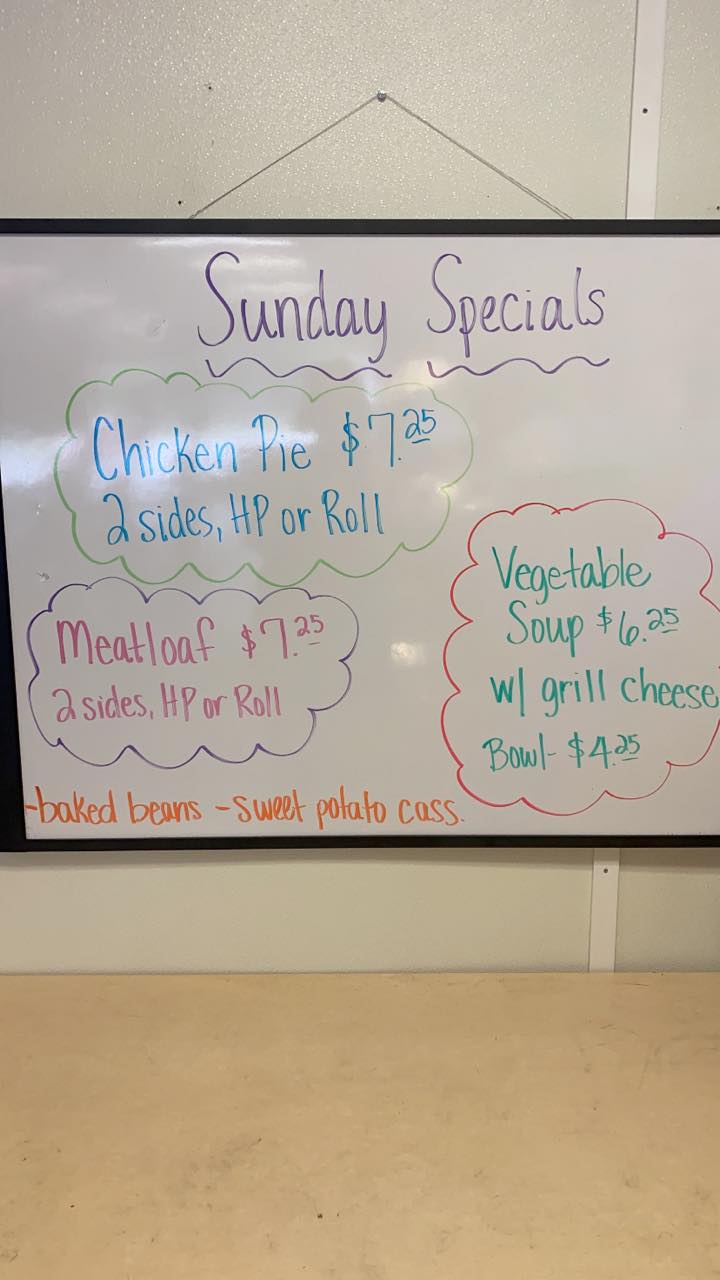 Sunday Specials
Chicken Pie $7.25
2 sides, HP or Roll
Meatloaf $7.25
2 sides, HP or Roll
Vegetable
Soup $6.25
w/ grill cheese
Bowl- $4.25
-baked beans -sweet potato cass.